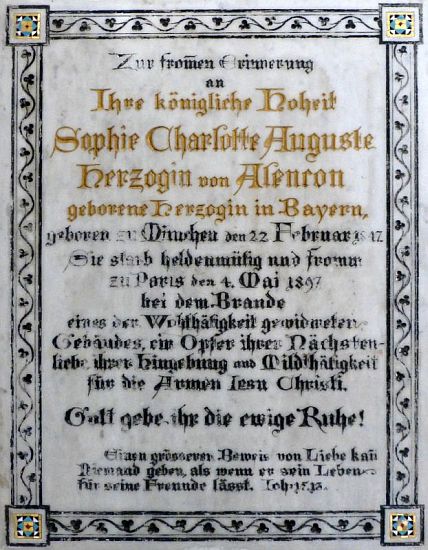 Zur from̄en Erinnerung
an
Ihre königliche Hoheit
Sophie Charlotte Auguste
Herzogin von Alencon
geborene Herzogin in Bayern,
geboren zu München den 22 Februar 1847
Sie starb heldenmütig und fromm
zu Paris den 4. Mai 1897
bei dem Brande
eines der Wohlthätigkeit gewidmeten
Gebäudes, ein Opfer ihrer Nächsten-
liebe, ihrer Hingebung und Mildthätigkeit
für die Armen Iesu Christi.
Gott gebe ihr die ewige Ruhe!
Einen grösseren Beweis von Liebe kan̄
Niemand geben, als wenn er sein Leben
für seine Freunde lässt. Ioh. 15.13.